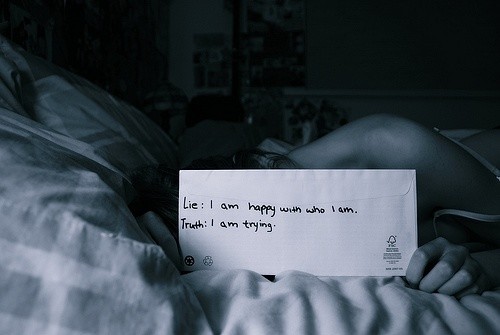 Lie: I am happy with who I am.
Truth: I am trying.
FSC